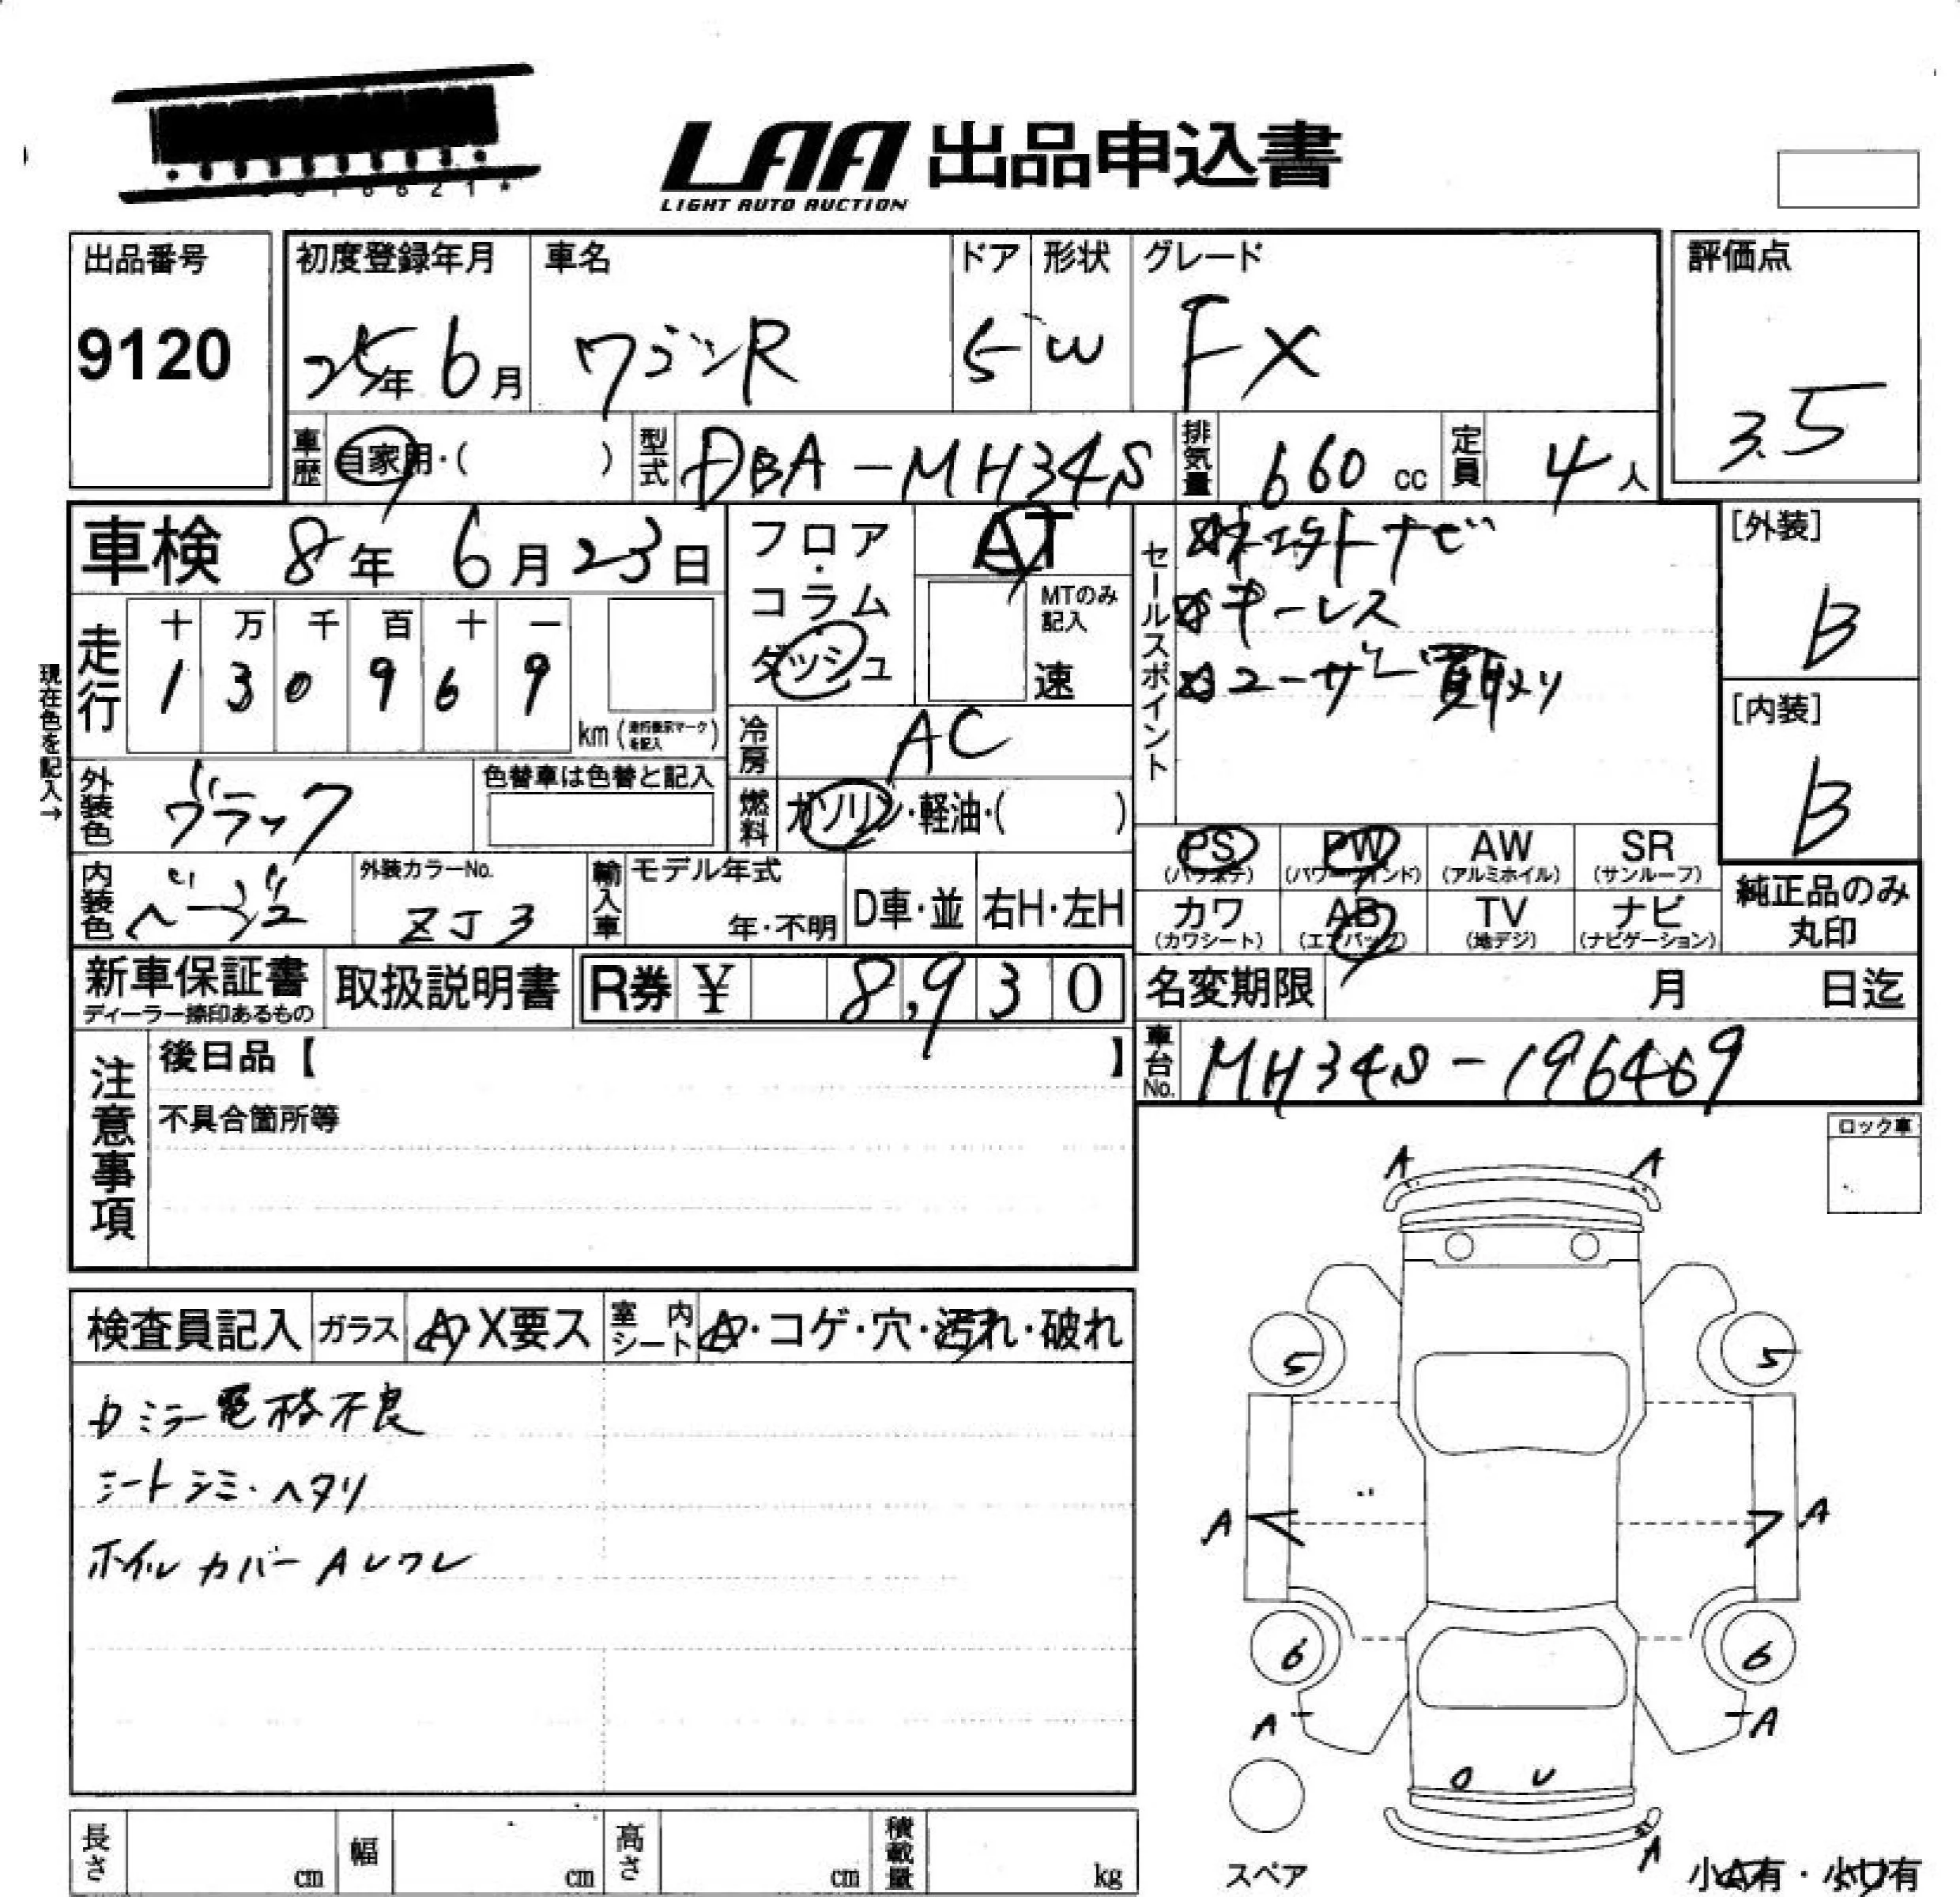 LAA 出品申込書
LIGHT AUTO AUCTION
出品番号
9120
初度登録年月
25年 6月
車名
ワゴンR
ドア
5
形状
W
グレード
FX
評価点
3.5
車歴
自家用・( )
型式
DBA-MH34S
排気量
660 cc
定員
4 人
車検 8年 6月 23日
フロア・コラム・ダッシュ
AT
MTのみ記入
速
セールスポイント
キーレス
ユーザー買取り
[外装]
B
[内装]
B
現在色を記入→
走行
十 万 千 百 十 一
1 3 0 9 6 9
km (走行表示マークを記入)
冷房
AC
外装色
ブラック
色替車は色替と記入
燃料
ガソリン・軽油・( )
内装色
ベージュ
外装カラーNo.
ZJ3
輸入車
モデル年式
年・不明
D車・並
右H・左H
PS (パワステ)
PW (パワーウインド)
AW (アルミホイル)
SR (サンルーフ)
カワ (カワシート)
AB (エアバッグ)
TV (地デジ)
ナビ (ナビゲーション)
純正品のみ丸印
新車保証書
ディーラー捺印あるもの
取扱説明書
R券 ¥ 8,930
名変期限 月 日迄
車台No.
MH34S-196469
注意事項
後日品【 】
不具合箇所等
ロック車
検査員記入
ガラス
A・X要ス
室内シート
A・コゲ・穴・汚れ・破れ
カミラー電格不良
シートシミ・ヘタリ
ホイルカバーAレワレ
A A
5 5
A A
6 6
A A
U
A
スペア
小A有・小U有
長さ cm
幅 cm
高さ cm
積載量 kg